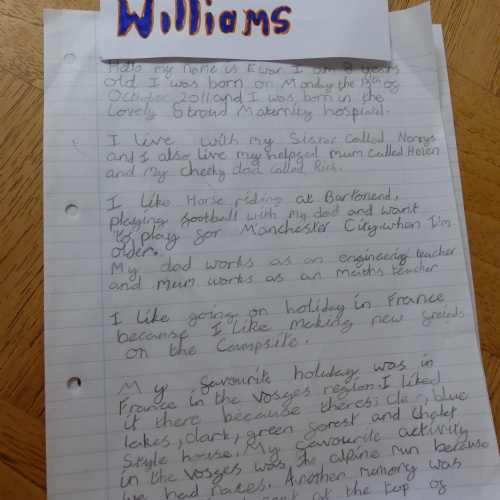 Williams
Hello my name is Ewan I am 8 years
old I was born on Monday the of
October 2011 and I was born in the
Lovely Stroud Maternity hospital.
I live with my Sister Called Nerys
and I also live my helpful mum Called Helen
and my cheeky dad called Rich.
I like Horse riding at Bartonend,
playing football with my dad and want
to play for Manchester City when I'm
older.
My dad works as an engineering teacher
and mum works as an maths teacher
I like going on holiday in France
because I like making new freinds
on the Campsite.
My favourite holiday was in
France in the Vosges region. I liked
it there because theres clear, blue
lakes, dark, green forest and Chalet
Style house. My favourite activity
in the Vosges was the alpine run because
we had races. Another memory was
at the top of